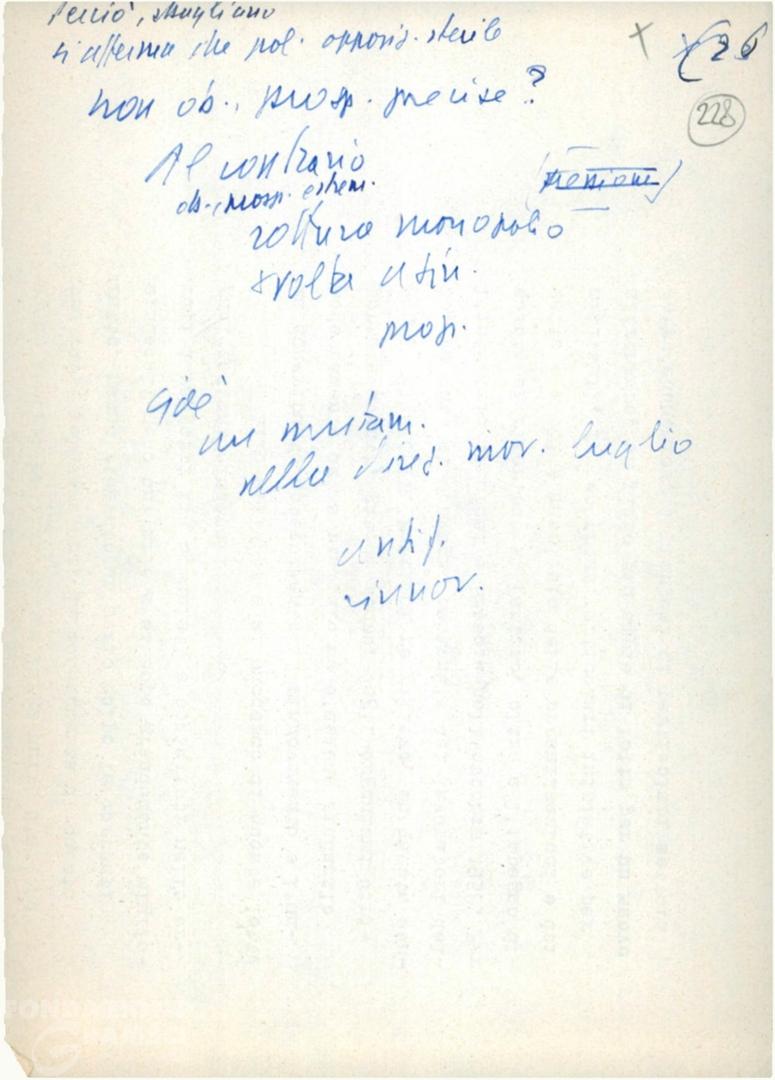 Perciò, sbagliano
si afferma che pol. opposiz. sterile
(26
228
non ob., prosp. precise?
Al contrario
ob., prosp. estrem.
rottura monopolio
svolta a sin.
prosp.
cioè
un mutam.
nella direz. mov. luglio
antif.
rinnov.
FONDAZIONE